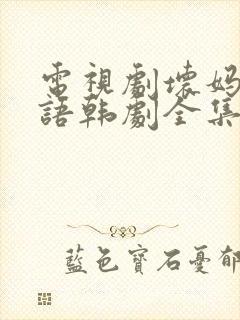 電視劇壞妈
語韩劇全集
藍色寶石憂郁